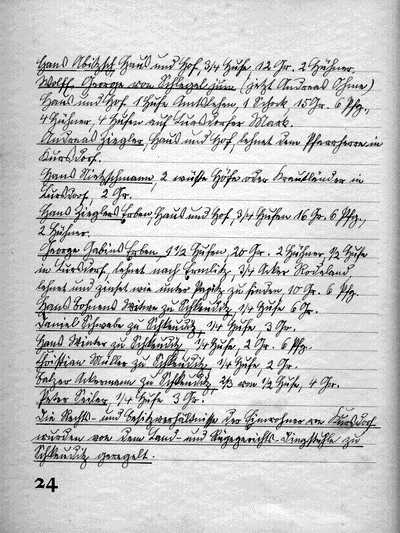 Hans Nitzsch, Haus und Hof, 3/4 Hufe, 12 Gr. 2 Hühner.
Wolff George von (jetzt Andreas Ohme)
Haus und Hof 1 Hufe Amtslehen, 1 Schock 15 Gr. 6 Pfg.,
4 Hühner, 4 Hufen auf Mark.
Andreas Ziegler, Haus und Hof, lehnet dem Pfarrherrn in
Kursdorf.
Hans Nietzschmann, 2 wüste Höfe oder Krautländer in
Kursdorf, 2 Gr.
Hans Zieglers Erben, Haus und Hof, 3/4 Hufen 16 Gr. 6 Pfg.,
2 Hühner.
George Erben 1 1/2 Hufen, 20 Gr. 2 Hühner, 1/2 Hufe
in Kursdorf, lehnet nach Ermlitz, 3/4 Acker Rodeland
lehnet und zinset wie unter zu finden, 10 Gr. 6 Pfg.
Hans Witwe zu Schkeuditz, 1/4 Hufe 6 Gr.
Daniel Schwabe zu Schkeuditz, 1/4 Hufe 3 Gr.
Hans Winter zu Schkeuditz 1/4 Hufe, 2 Gr. 6 Pfg.
Christian Müller zu Schkeuditz, 1/4 Hufe, 2 Gr.
Balzer Ackermann zu Schkeuditz, 2/3 von 1/2 Hufe, 4 Gr.
Peter Seiler, 1/4 Hufe 3 Gr.
Die Rechts- und Besitzverhältnisse der Einwohner von Kursdorf
wurden von dem Land- und Rügegerichts-Dingstuhle zu
Schkeuditz geregelt.
24